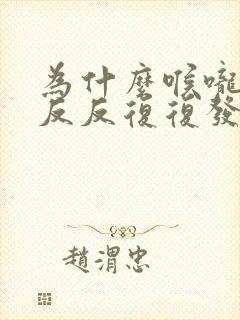 為什麼喉嚨
反反復復發
趙渭忠